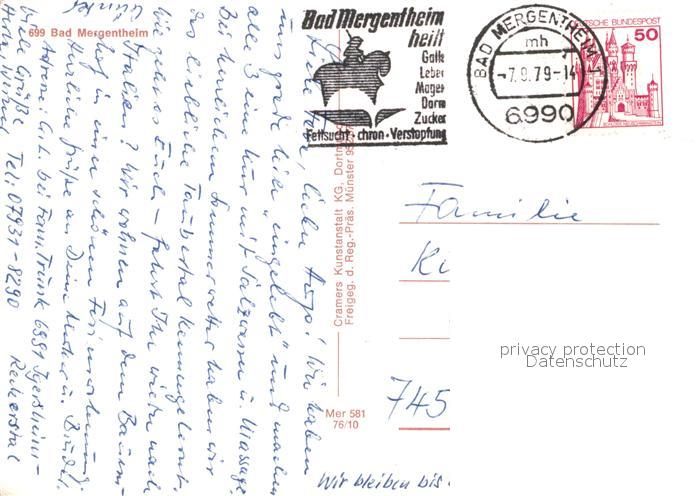 699 Bad Mergentheim
Bad Mergentheim
heilt
Galle
Leber
Magen
Darm
Zucker
Fettsucht · chron · Verstopfung
BAD MERGENTHEIM 1
mh
-7.9.79-14
6990
DEUTSCHE BUNDESPOST
50
Liebe
wir haben
uns
hier "eingelebt" und machen
alle 3 eine Kur mit
u. Massage.
Bei herrlichem Sommerwetter haben wir
das liebliche Taubertal kennengelernt.
Wie geht es Euch – fahrt Ihr wieder nach
Italien? Wir wohnen auf dem Bauern-
hof in einer schönen Ferienwohnung.
Herzliche Grüße an Deine Mutter u.
Adresse:
bei Fam. Trunk 6991 Igersheim-
Reckerstal
Viele Grüße
Tel: 07931-8290
Wir bleiben bis
Cramers Kunstanstalt KG, Dortm
Freigeg. d. Reg.-Präs. Münster 95
Mer 581
76/10
Familie
Ki
745
privacy protection
Datenschutz